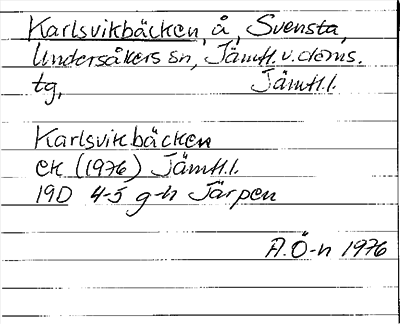 Karlsvikbäcken, å, Svensta,
Undersåkers sn, Jämtl. v. doms.
tg, Jämtl.l.
Karlsvikbäcken
ek (1976) Jämtl.l.
19D 4-5 g-h Järpen
A.Ö-n 1976